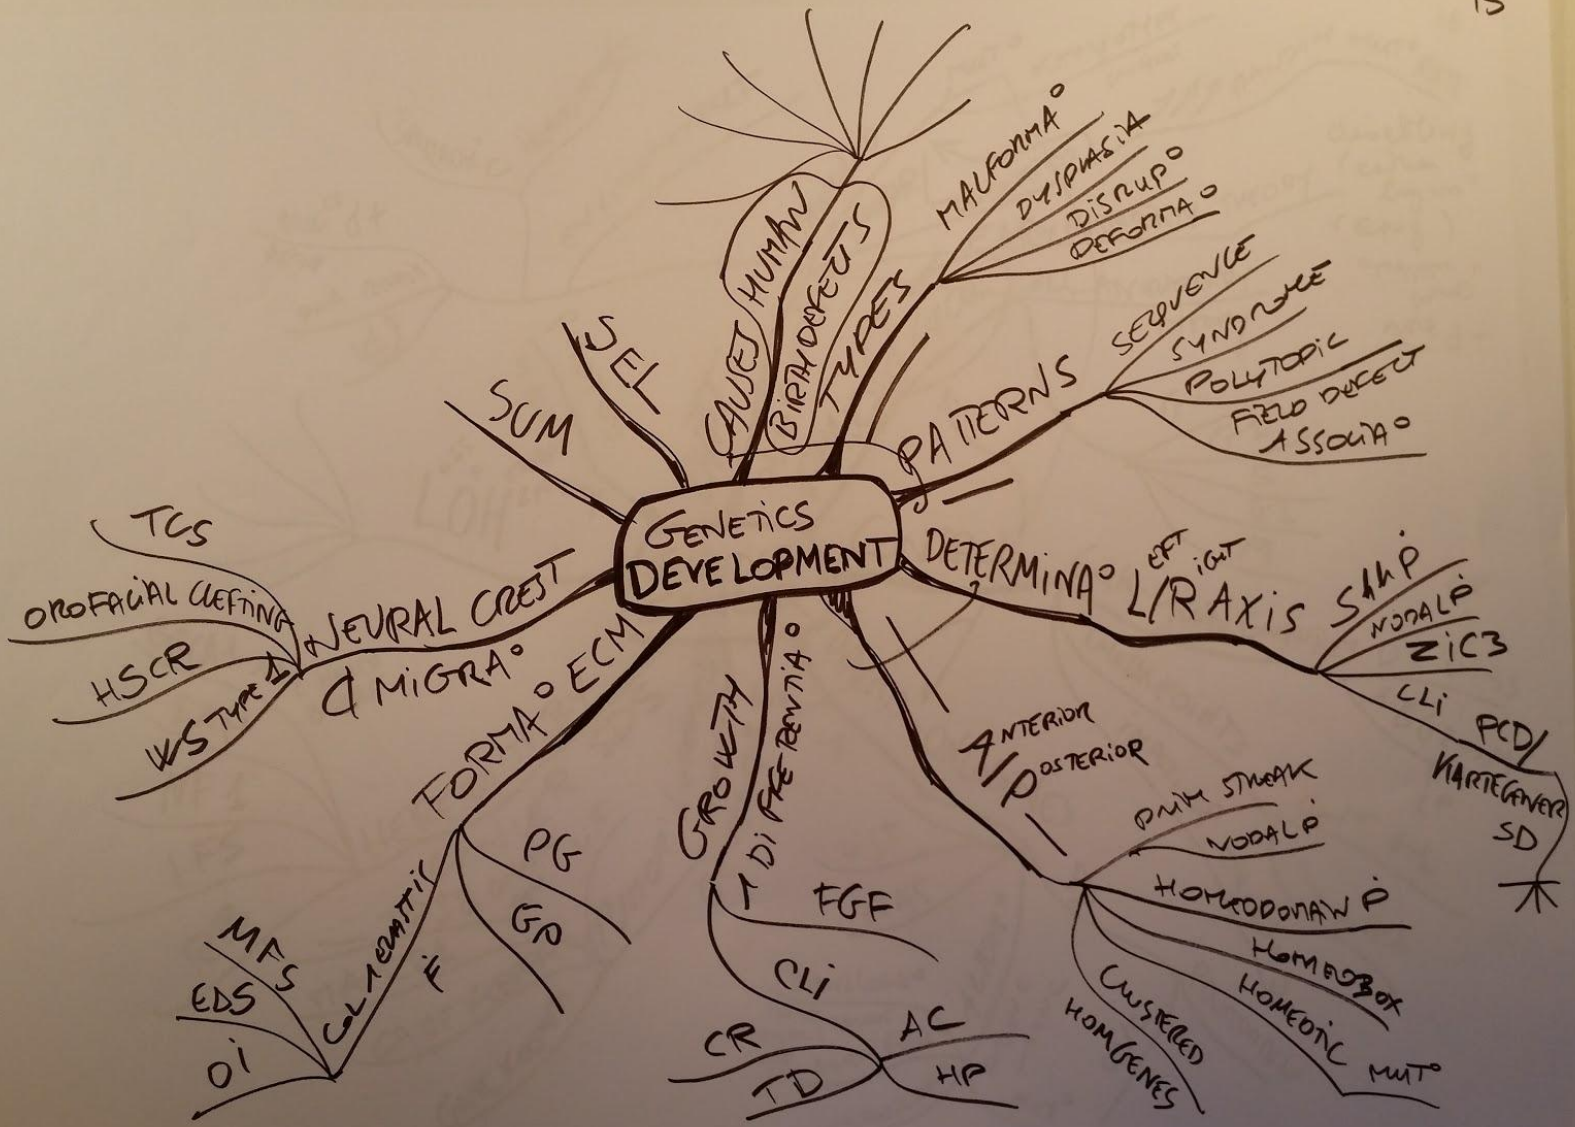 15
GENETICS
DEVELOPMENT
SUM
SEL
CAUSES HUMAN
BIRTH DEFECTS
TYPES
MALFORMA°
DYSPLASIA
DISRUP°
DEFORMA°
PATTERNS
SEQUENCE
SYNDROME
POLYTOPIC
FIELD DEFECT
ASSOCIA°
DETERMINA° L/R AXIS
EFT
IGHT
SHH P
NODAL P
ZIC3
CLI
PCD/
KARTEGENER
SD
ANTERIOR
/POSTERIOR
PRIM STREAK
NODAL P
HOMEODOMAIN P
HOMEOBOX
HOMEOTIC MUT°
CLUSTERED
HOMGENES
GROWTH
DIFFERENTIA°
FGF
CLI
AC
HP
CR
TD
FORMA° ECM
PG
GP
MFS
EDS
OI
NEURAL CREST
MIGRA°
TCS
OROFACIAL CLEFTING
HSCR
WS TYPE 1